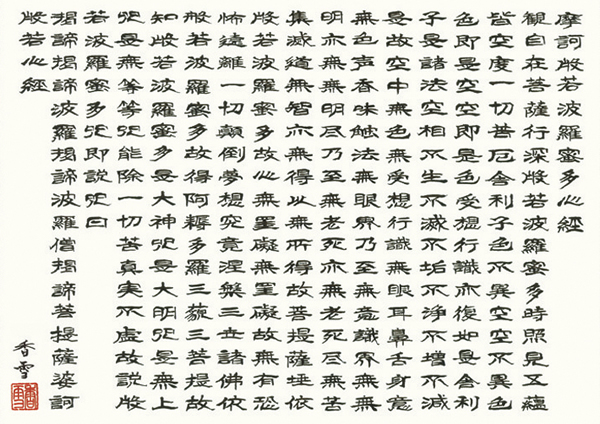 摩訶般若波羅蜜多心経
観自在菩薩行深般若波羅蜜多時照見五蘊
皆空度一切苦厄舎利子色不異空空不異色
色即是空空即是色受想行識亦復如是舎利
子是諸法空相不生不滅不垢不浄不増不減
是故空中無色無受想行識無眼耳鼻舌身意
無色声香味触法無眼界乃至無意識界無無
明亦無無明尽乃至無老死亦無老死尽無苦
集滅道無智亦無得以無所得故菩提薩埵依
般若波羅蜜多故心無罣礙無罣礙故無有恐
怖遠離一切顛倒夢想究竟涅槃三世諸佛依
般若波羅蜜多故得阿耨多羅三藐三菩提故
知般若波羅蜜多是大神呪是大明呪是無上
呪是無等等呪能除一切苦真実不虚故説般
若波羅蜜多呪即説呪曰
揭諦揭諦波羅揭諦波羅僧揭諦菩提薩婆訶
般若心經
香雪